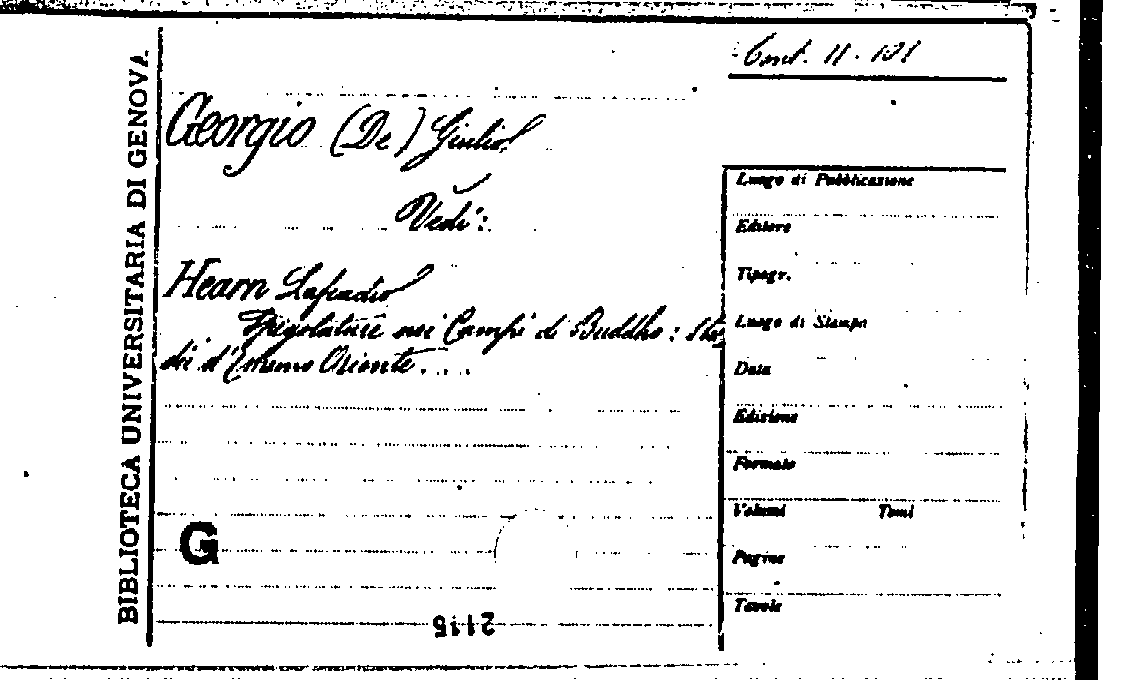 BIBLIOTECA UNIVERSITARIA DI GENOVA
Cont. II. 101
Georgio (De) Giulio.
Vedi:
Hearn Lafcadio
Spigolature nei Campi di Buddho: Stu
di d'Estremo Oriente....
G
2115
Luogo di Pubblicazione
Editore
Tipogr.
Luogo di Stampa
Data
Edizione
Formato
Volumi Tomi
Pagine
Tavole